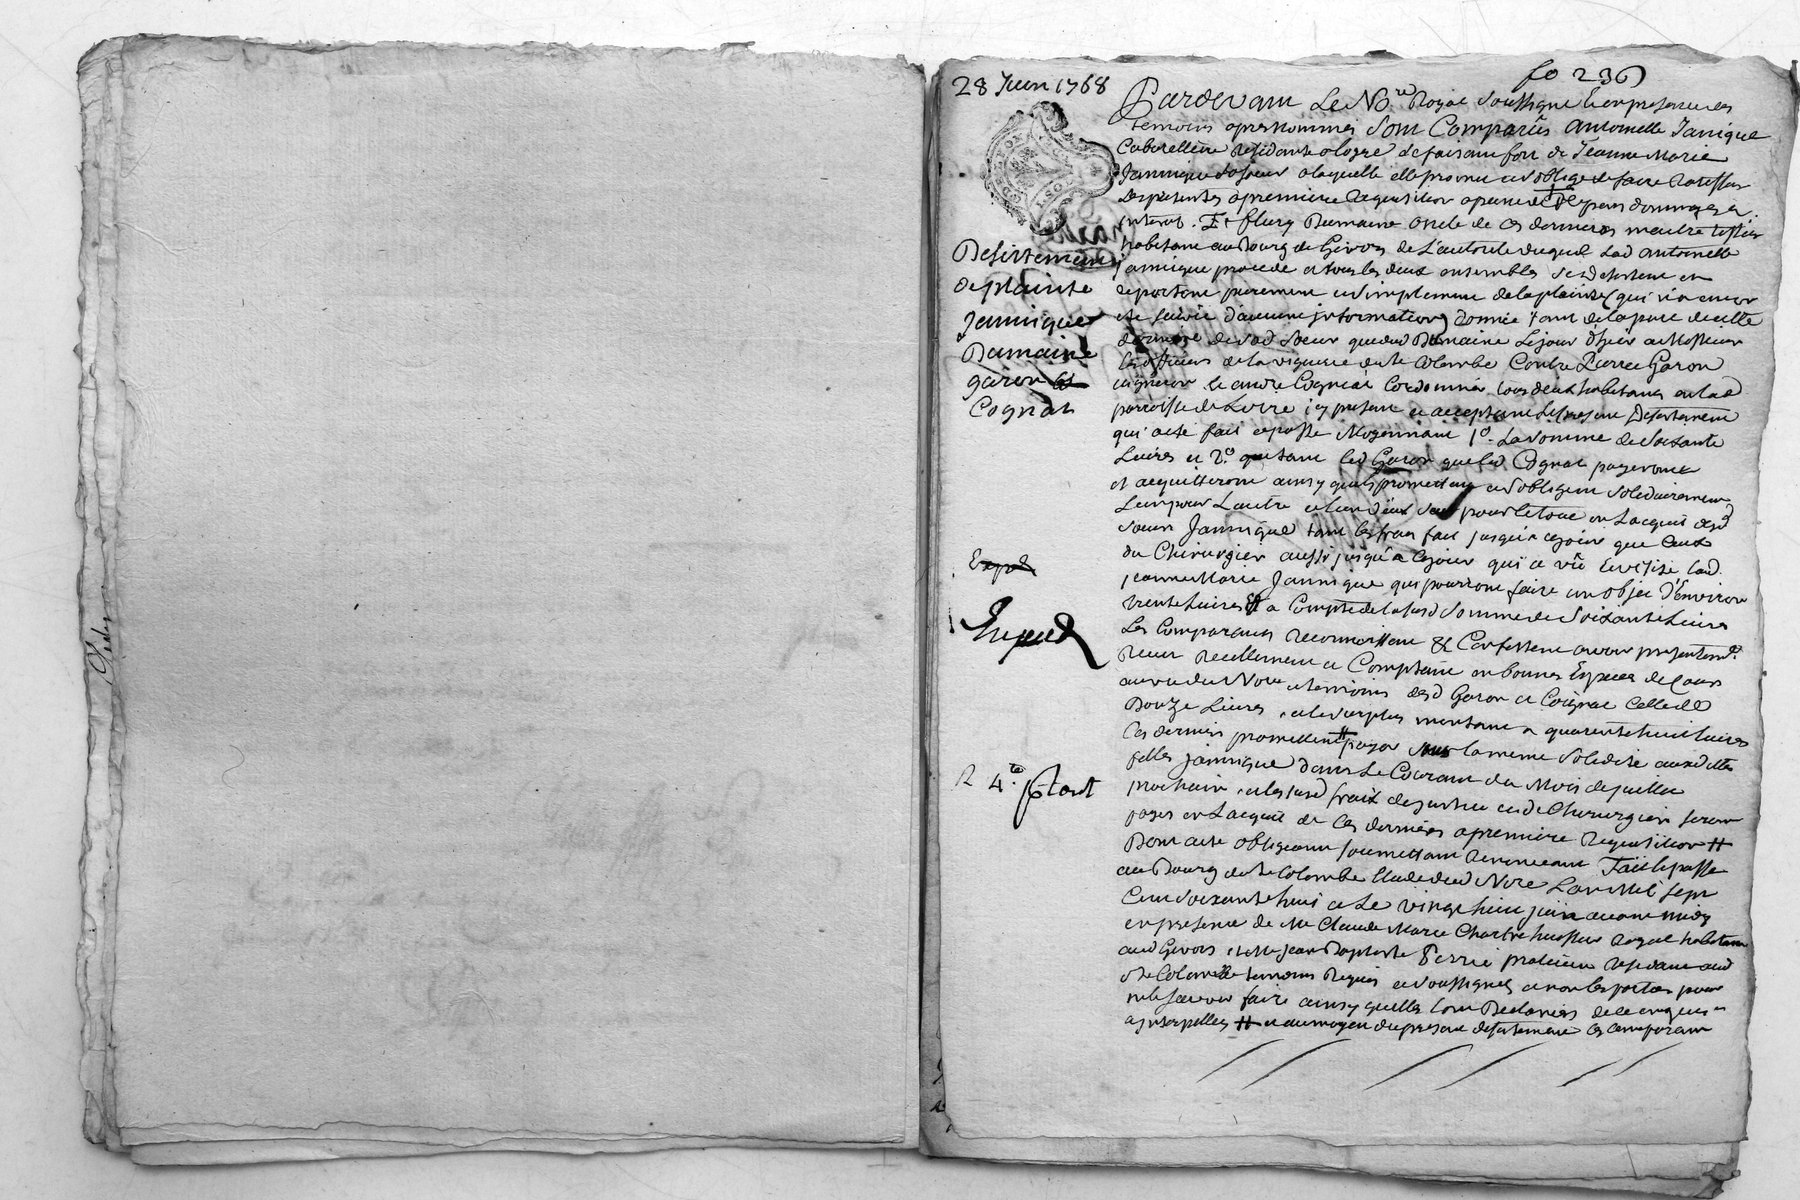 28 Juin 1768
fo 236
Pardevant Le No.re Royal Soussigné et en presence des
temoins apres nommés Sont Comparus Antoinette Jannique
Cabaretiere Residante a Loyre se faisant fort de Jeanne Marie
Jannique sa soeur a laquelle elle promet et s'oblige de faire Ratiffier
Les presentes a premiere Requisition a peine de tous depens dommages et
interets. Et fleury Dumaine oncle de ces dernieres maitre
habitant au Bourg de Givors de L'autorité duquel Lad antoinette
jannique procede et tous les deux ensembles se desistent et
departent purement et simplement de la plainte (qui n'a encor
été suivie d'aucune information) donnée tant de la part de cette
derniere de Sad Soeur que dud Dumaine Le jour d'hier a Messieurs
Les officiers de la viguerie de Ste Colombe Contre Pierre Garon
vigneron et andré Cognat Cordonnier tous deux habitants en lad
parroisse de Loire icy present et acceptant Le present Desistement
qui a été fait et passé Moyennant 1o. La Somme de Soixante
Livres et 2o. que tant led Garon que led Cognat payeront
et acquitteront ainsy qu'ils promettent et s'obligent Solidairement
L'un pour L'autre et l'un d'eux Seul pour le tout en L'acquit desd
Soeurs Jannique tant les frais fait jusqu'a ce jour que Ceux
du Chirurgien aussi jusqu'a ce jour qui a vû et visité lad.
jeanne Marie Jannique qui pourront faire un objet d'Environ
trente Livres # a Compte de la susd Somme de Soixante Livres
Les Comparants reconnoissent & Confessent avoir presentem.t
Receu Reellement et Comptant en bonnes Especes de Cours
au vu du No.re et temoins desd Garon et Cognat Celle de
Douze Livres, et le surplus montant a quarente huit Livres
Ces derniers promettent payer sous la meme Solidité auxdittes
filles jannique dans Le Courant du Mois de juillet
prochain, et les susd fraix de justice et de Chirurgien seront
payes en L'acquit de Ces dernieres a premiere Requisition #
Dont acte obligeant soumettant Renonceant Fait et passé
au Bourg de Ste Colombe Etude dud No.re L'an Mil sept
Cent Soixante huit et Le vingt huit juin avant midy
en presence de Me Claude Marie Chartre huissier Royal habitant
aud Givors et Me Jean Baptiste Ferrier praticien residant aud
Ste Colombe temoins Requis et Soussignés et non les parties pour
ne le sçavoir faire ainsy qu'elles l'ont Declarés de ce enquises
et interpellés # et au moyen du present desistement les comparant
Desistement
de plainte
Jannique
Dumaine
garon et
Cognat
Exped
Exped
R 4.e